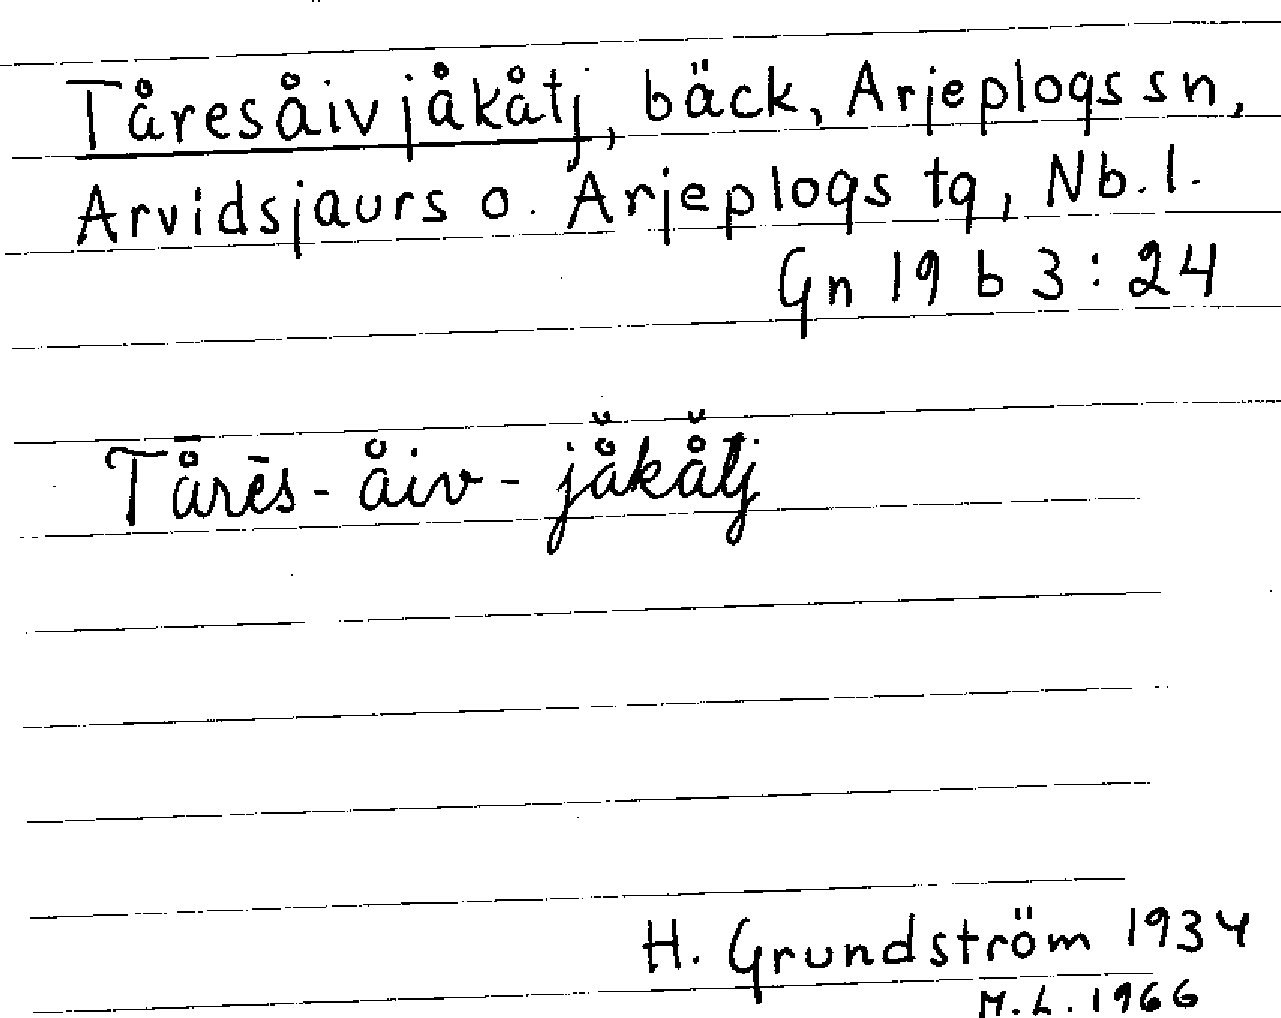 Tåresåivjåkåtj, bäck, Arjeplogs sn,
Arvidsjaurs o. Arjeplogs tg, Nb. l.
Gn 19 b 3:24
Tå̄rēs-åiv-jå̆kå̆tj
H. Grundström 1934
M.L. 1966